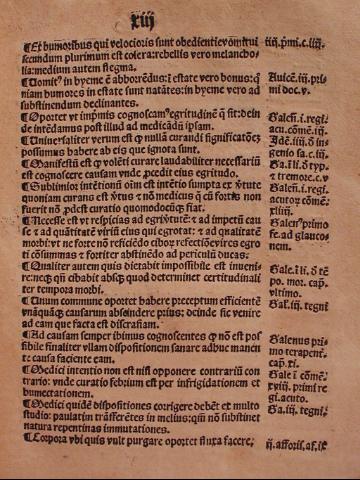 xiij
¶Et humoribus qui velocioris sunt obedientie vomitui
secundum plurimum est colera: rebellis vero melancho-
lia: medium autem flegma.
in hyeme ē abhorrēdus: ī estate vero bonus: q̄
niam humores in estate sunt natātes: in hyeme vero ad
subsidendum declinantes.
¶Oportet vt imprimis cognoscamꝰ egritudinē q̄ sit: dein
de intēdamus post illud ad medicādū ipsam.
¶Uniuersaliter verum est ꝙ nullā curandi significationē
possumus habere ab eis que ignota sunt.
¶Manifestū est ꝙ volēti curare laudabiliter necessariū
est cognoscere causam vnde procedit eius egritudo.
¶Sublimior intētionū oīm est intētio sumpta ex
quoniam curans est et nō medicus
fuerit nō curatio quomodocūꝗ fiat.
¶Necesse est vt respicias ad et ad impetū cau
se et ad quātitatē virtū eius qui egrotat: et ad qualitatē
morbi: vt ne forte nō reficiēdo cibo refectiōe vires egro
ti cōsummas et fortiter abstinēdo ad periculū ducas.
¶Qualiter autem quis dictabit impossibile est inueni-
re: neꝗ qn̄ cibabit absꝗ quod determinet certitudinali
ter tempora morbi.
¶Unum commune oportet habere preceptum efficientē
vnāquāꝗ causarum abscindere prius: deinde sic venire
ad eam que facta est discrasiam.
¶Ad causam semper hinnus cognoscentes ꝙ nō est pos
sibile finaliter vllam dispositionem sanare adhuc manen
te causa faciente eam.
¶Medici intentio non est nisi opponere contrariū con
trario: vnde curatio febrium est per infrigidationem et
humectationem.
¶Medici quidē dispositiones corrigere debēt et multo
studio: paulatim trāsferētes in melius: qm̄ nō substinet
natura repentinas immutationes.
¶Corpora vbi quis vult purgare oportet fluxa facere:
iiij. pmi. c. iij.
Auicē. iij. pri
mi doc. v.
Galeñ. i. regi.
acu. cōmē. iij.
Idē. iij. ō in
genio sa. c. iij.
Ga. ī li. ō
et tremore. c. v
Galeñ. i. regi.
acutoꝝ cōmē.
xliij.
primo
re. ad glauco
nem.
Gale. ī li. ō tē
po. mor. cap.
vltimo.
Gal. iij. tegni
Galenus pri
mo terapenē.
cap. xi.
Gale ī cōmē.
xviij. primi re
gi. acuto.
Ga. iij. tegni.
ij. afforis. af. ix